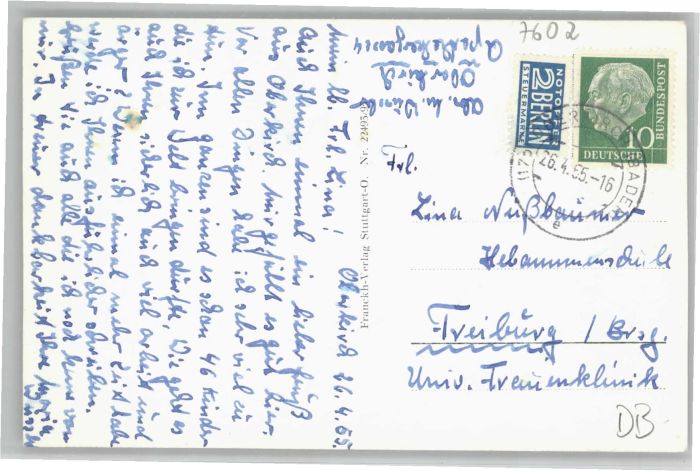 7602
NOTOPFER
2 BERLIN
STEUERMARKE
DEUTSCHE
BUNDESPOST
10
26.4.55.-16
BADEN
e
Abs. M.
Oberkirch
Apothekergasse 4
Oberkirch 26.4.55.
Mein lb. Frl. Lina!
Auch Ihnen einmal ein lieber Gruß
aus Oberkirch. Mir gefällt es gut hier.
Vor allen Dingen habe ich sehr viel zu
tun. Im ganzen sind es schon 46 Kinder
die ich zur Welt bringen durfte. Wie geht es
auch Ihnen sicherlich auch viel Arbeit und
Ärger? Wenn ich einmal mehr Zeit habe
werde ich Ihnen ausführlicher schreiben.
Grüßen Sie auch alle die ich noch kenne von
mir. In treuer Dankbarkeit Ihre Maria
Franckh-Verlag Stuttgart-O. Nr. 22495/92
Frl.
Lina Nußbaumer
Hebammenschule
Freiburg / Brsg.
Univ. Frauenklinik
DB